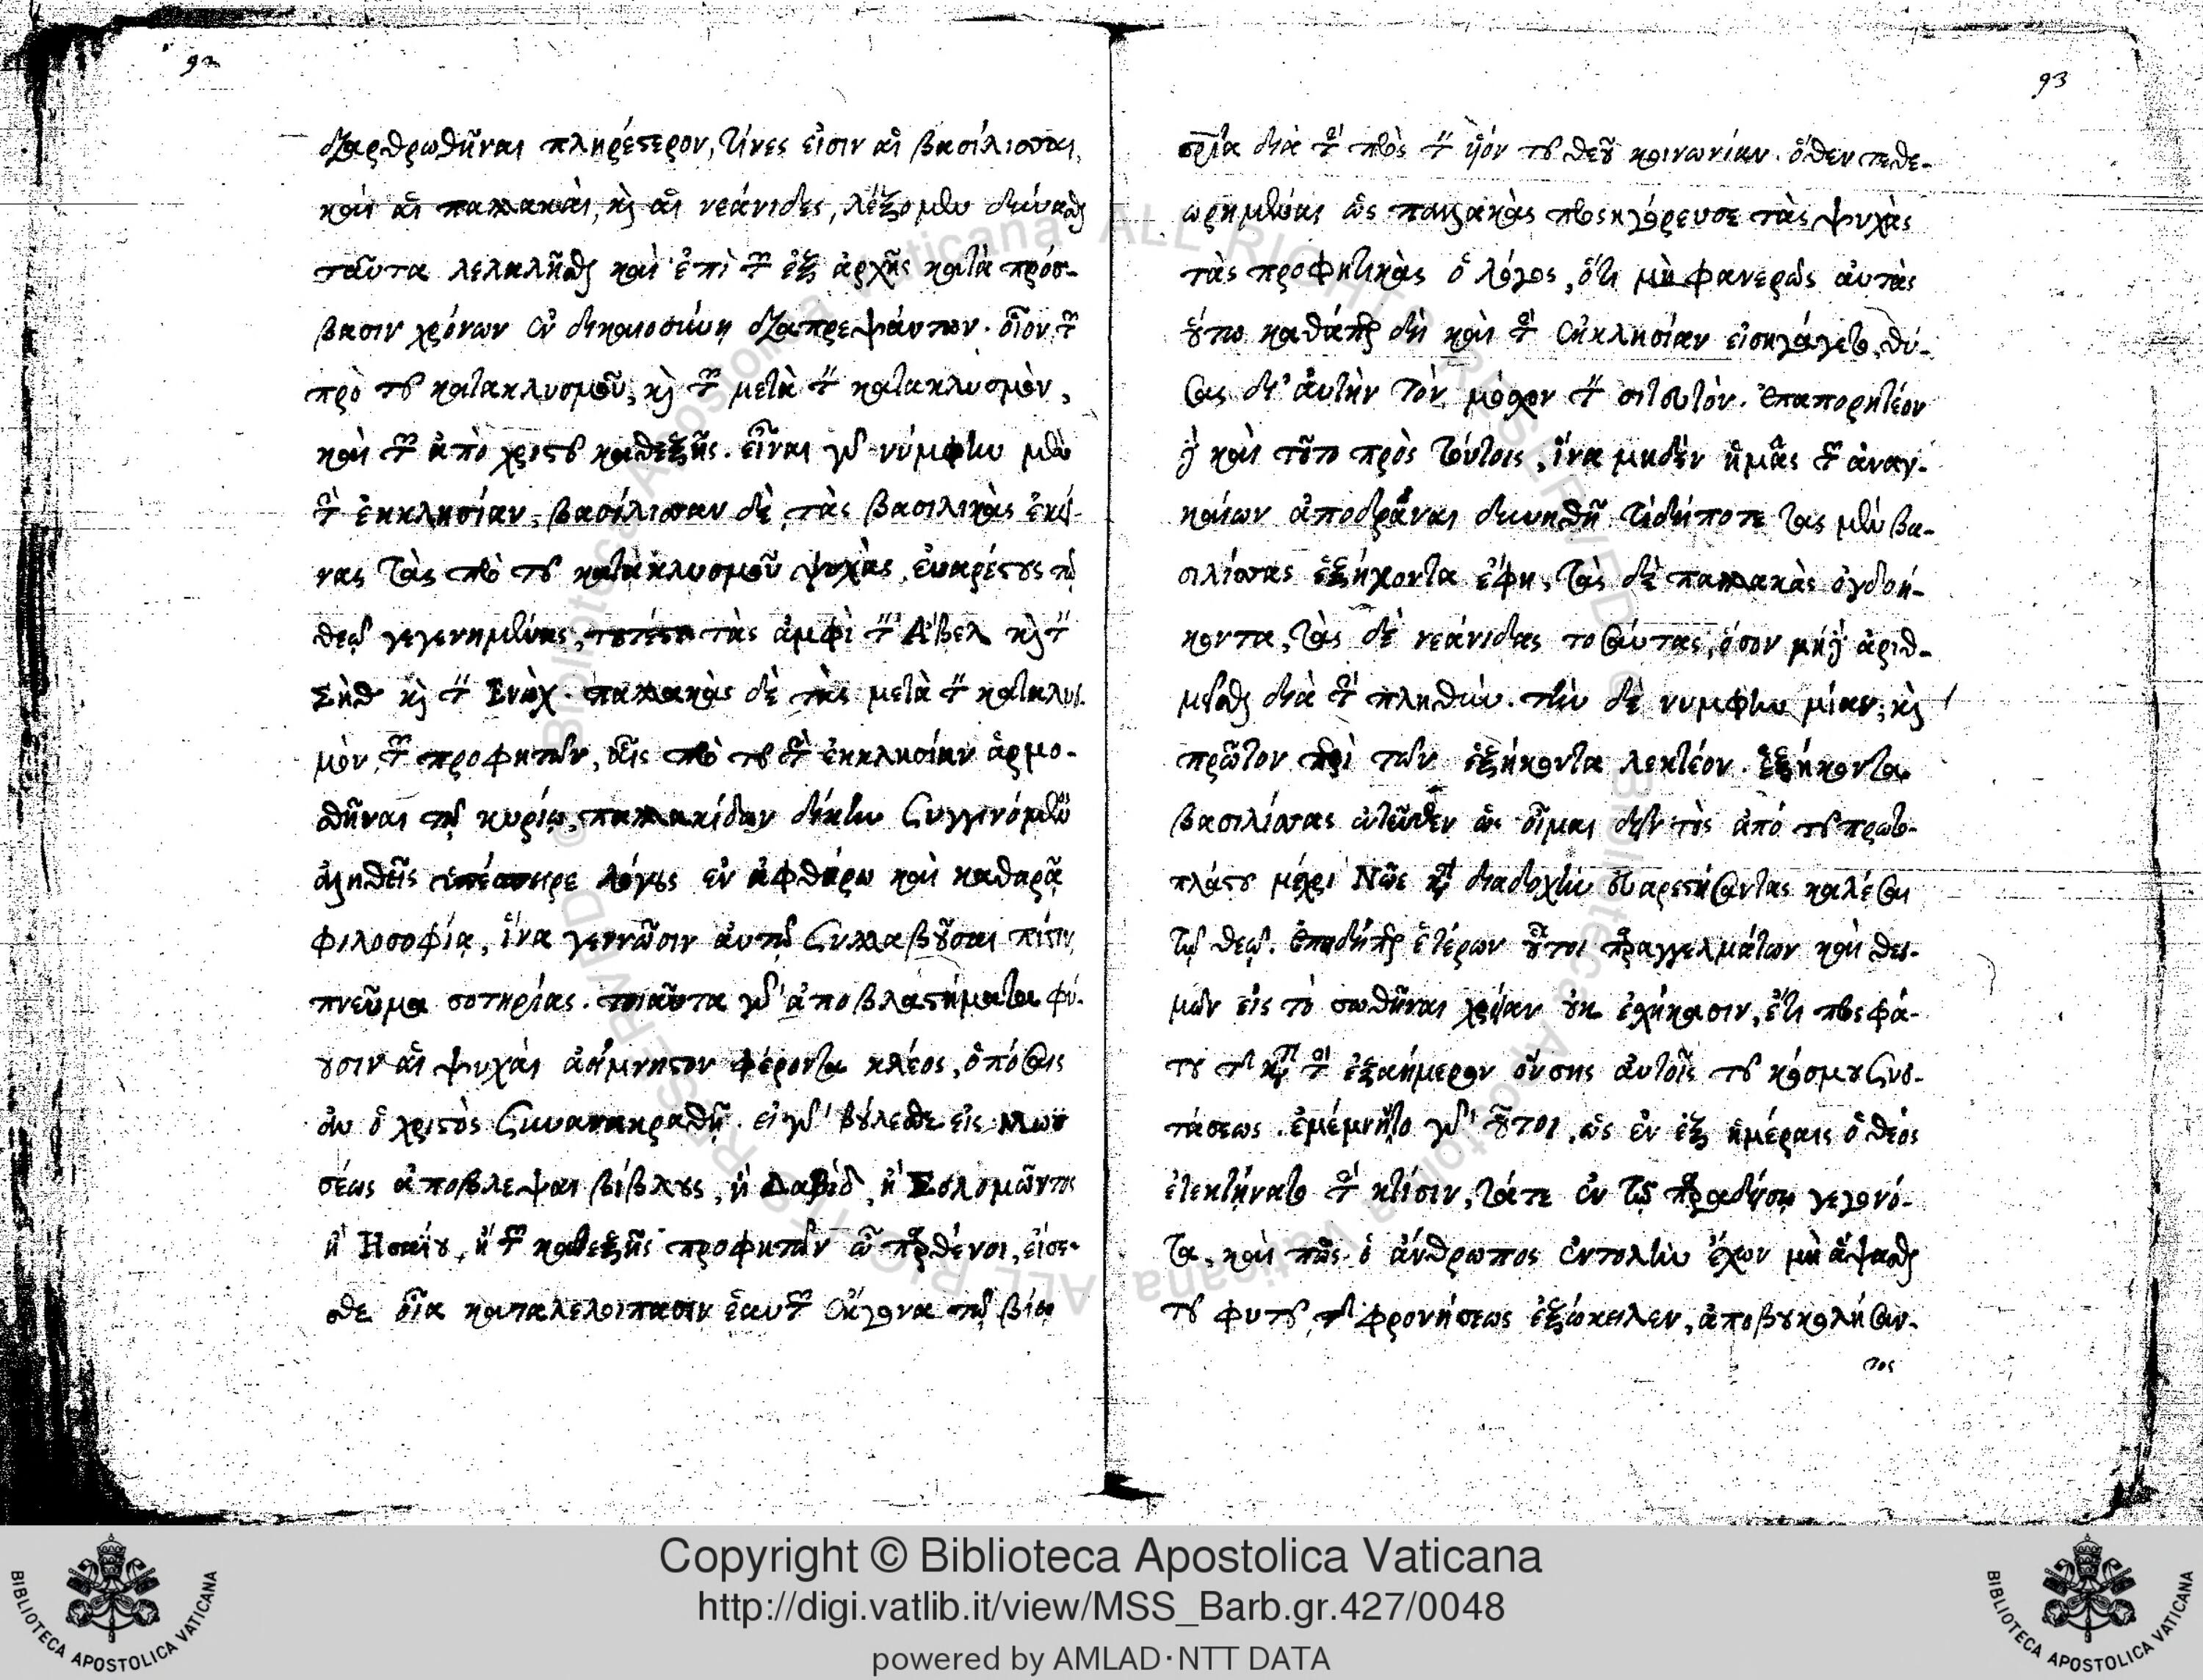 92
διαρθρωθῆναι πληρέστερον, τίνες εἰσὶν αἱ βασίλισσαι,
καὶ αἱ παλλακαὶ, κỳ αἱ νεάνιδες, λέξομεν δύνασθαι
ταῦτα λελαλῆσθαι καὶ ἐπὶ τῶν ἐξ ἀρχῆς κατὰ πρόσ-
βασιν χρόνων ἐν δικαιοσύνῃ διαπρεψάντων. οἷον τῶν
πρὸ τοῦ κατακλυσμοῦ, καὶ τῶν μετὰ τὸν κατακλυσμὸν,
καὶ τῶν ἀπὸ χριστοῦ καθεξῆς. εἶναι γὰρ νύμφην μὲν
τὴν ἐκκλησίαν, βασίλισσαν δὲ, τὰς βασιλικὰς ἐκεί-
νας τὰς πρὸ τοῦ κατακλυσμοῦ ψυχὰς, εὐαρέστους τῷ
θεῷ γεγενημένας, τουτέστι τὰς ἀμφὶ τὸν Ἄβελ καὶ τὸν
Σὴθ καὶ τὸν Ἐνώχ. παλλακὰς δὲ τὰς μετὰ τὸν κατακλυσ-
μὸν, τῶν προφητῶν, αἷς πρὸ τοῦ τὴν ἐκκλησίαν ἁρμο-
σθῆναι τῷ κυρίῳ, παλλακίδων δίκην συγγινόμενος
ἀληθεῖς ἐπέσπειρε λόγους ἐν ἀφθόρῳ καὶ καθαρᾷ
φιλοσοφίᾳ, ἵνα γεννῶσιν αὐτῷ συλλαβοῦσαι πίστιν,
πνεῦμα σοτηρίας. τοιαῦτα γὰρ ἀποβλαστήματα φύ-
ουσιν αἱ ψυχαὶ ἀείμνηστον φέροντα κλέος, ὁπόσαις
ἂν ὁ χριστὸς συνανακραθῇ. εἰ γὰρ βούλεσθε εἰς Μωϋ
σέως ἀποβλεψαι βίβλους, ἢ Δαβὶδ, ἢ Σολομῶντος
ἢ Ησαΐου, ἢ τῶν καθεξῆς προφητῶν ὦ παρθένοι, εἴσε-
σθε οἷα καταλελοίπασιν ἑαυτῶν ἔκγονα τῷ βίῳ
93
σωτηρία διὰ τὴν πρὸς τὸν υἱόν τοῦ θεοῦ κοινωνίαν. ὅθεν τεθε-
ωρημένως ὡς παλλακὰς προσηγόρευσε τὰς ψυχὰς
τὰς προφητικὰς ὁ λόγος, ὅτι μὴ φανερῶς αὐτὰς
οὕτω καθάπερ δὴ καὶ τὴν ἐκκλησίαν εἰσηγάγετο, θύ-
σας δι' αὐτὴν τὸν μόσχον τὸν σιτευτόν. Ἐπαπορητέον
δὲ καὶ τοῦτο πρὸς τούτοις, ἵνα μηδὲν ἡμᾶς τῶν ἀναγ-
καίων ἀποδρᾶναι δυνηθῇ τιδήποτε τας μὲν βα-
σιλίσσας ἑξήκοντα ἔφη, τὰς δὲ παλλακὰς ὀγδοή-
κοντα, τὰς δὲ νεάνιδας τοσαύτας, ὅσον μὴ δὲ ἀριθ-
μεῖσθαι διὰ τὴν πληθύν. τὴν δὲ νυμφην μίαν, καὶ
πρῶτον περὶ τῶν ἑξήκοντα λεκτέον. Ἑξήκοντα
βασιλίσσας ἐντεῦθεν ὡς οἶμαι δὴ τοὺς ἀπό τοῦ πρωτο-
πλάστου μέχρι Νῶε κατὰ διαδοχὴν εὐαρεστήσαντας καλέσαι
τῷ θεῷ. Ἐπειδήπερ ἑτέρων οὗτοι παραγγελμάτων καὶ θεσ-
μῶν εἰς τὸ σωθῆναι χρείαν οὐκ ἐχήκασιν, ἔτι προσφά-
του τῆς κατὰ τὴν ἑξαήμερον οὔσης αὐτοῖς τοῦ κόσμου συσ-
τάσεως. ἐμέμνηντο γὰρ οὗτοι, ὡς ἐν ἓξ ἡμέραις ὁ θεός
ἐτεκτήνατο τὴν κτίσιν, τάτε ἐν τῷ παραδείσῳ γεγονό-
τα, καὶ πῶς ὁ ἄνθρωπος ἐντολὴν ἔχων μὴ ἅψασθαι
τοῦ φυτοῦ τῆς φρονήσεως ἐξώκειλεν, ἀποβουκολήσαν-
τος
Copyright © Biblioteca Apostolica Vaticana
http://digi.vatlib.it/view/MSS_Barb.gr.427/0048
powered by AMLAD·NTT DATA
BIBLIOTECA APOSTOLICA VATICANA
BIBLIOTECA APOSTOLICA VATICANA